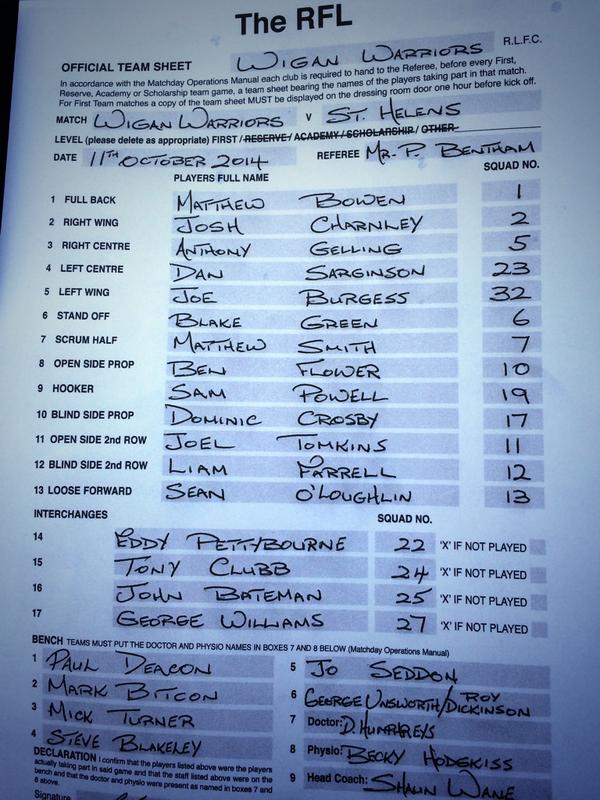 The RFL
OFFICIAL TEAM SHEET WIGAN WARRIORS R.L.F.C.
In accordance with the Matchday Operations Manual each club is required to hand to the Referee, before every First,
Reserve, Academy or Scholarship team game, a team sheet bearing the names of the players taking part in that match.
For First Team matches a copy of the team sheet MUST be displayed on the dressing room door one hour before kick off.
MATCH WIGAN WARRIORS V ST. HELENS
LEVEL (please delete as appropriate) FIRST / RESERVE / ACADEMY / SCHOLARSHIP / OTHER
DATE 11TH OCTOBER 2014 REFEREE MR. P. BENTHAM
PLAYERS FULL NAME SQUAD NO.
1 FULL BACK MATTHEW BOWEN 1
2 RIGHT WING JOSH CHARNLEY 2
3 RIGHT CENTRE ANTHONY GELLING 5
4 LEFT CENTRE DAN SARGINSON 23
5 LEFT WING JOE BURGESS 32
6 STAND OFF BLAKE GREEN 6
7 SCRUM HALF MATTHEW SMITH 7
8 OPEN SIDE PROP BEN FLOWER 10
9 HOOKER SAM POWELL 19
10 BLIND SIDE PROP DOMINIC CROSBY 17
11 OPEN SIDE 2nd ROW JOEL TOMKINS 11
12 BLIND SIDE 2nd ROW LIAM FARRELL 12
13 LOOSE FORWARD SEAN O'LOUGHLIN 13
INTERCHANGES SQUAD NO.
14 EDDY PETTYBOURNE 22 'X' IF NOT PLAYED
15 TONY CLUBB 24 'X' IF NOT PLAYED
16 JOHN BATEMAN 25 'X' IF NOT PLAYED
17 GEORGE WILLIAMS 27 'X' IF NOT PLAYED
BENCH TEAMS MUST PUT THE DOCTOR AND PHYSIO NAMES IN BOXES 7 AND 8 BELOW (Matchday Operations Manual)
1 PAUL DEACON 5 JO SEDDON
2 MARK BITCON 6 GEORGE UNSWORTH/ROY DICKINSON
3 MICK TURNER 7 Doctor: D. HUMPHREYS
4 STEVE BLAKELEY 8 Physio: BECKY HODGKISS
9 Head Coach: SHAUN WANE
DECLARATION I confirm that the players listed above were the players
actually taking part in said game and that the staff listed above were on the
bench and that the doctor and physio were present as named in boxes 7 and
8 above.
Signature